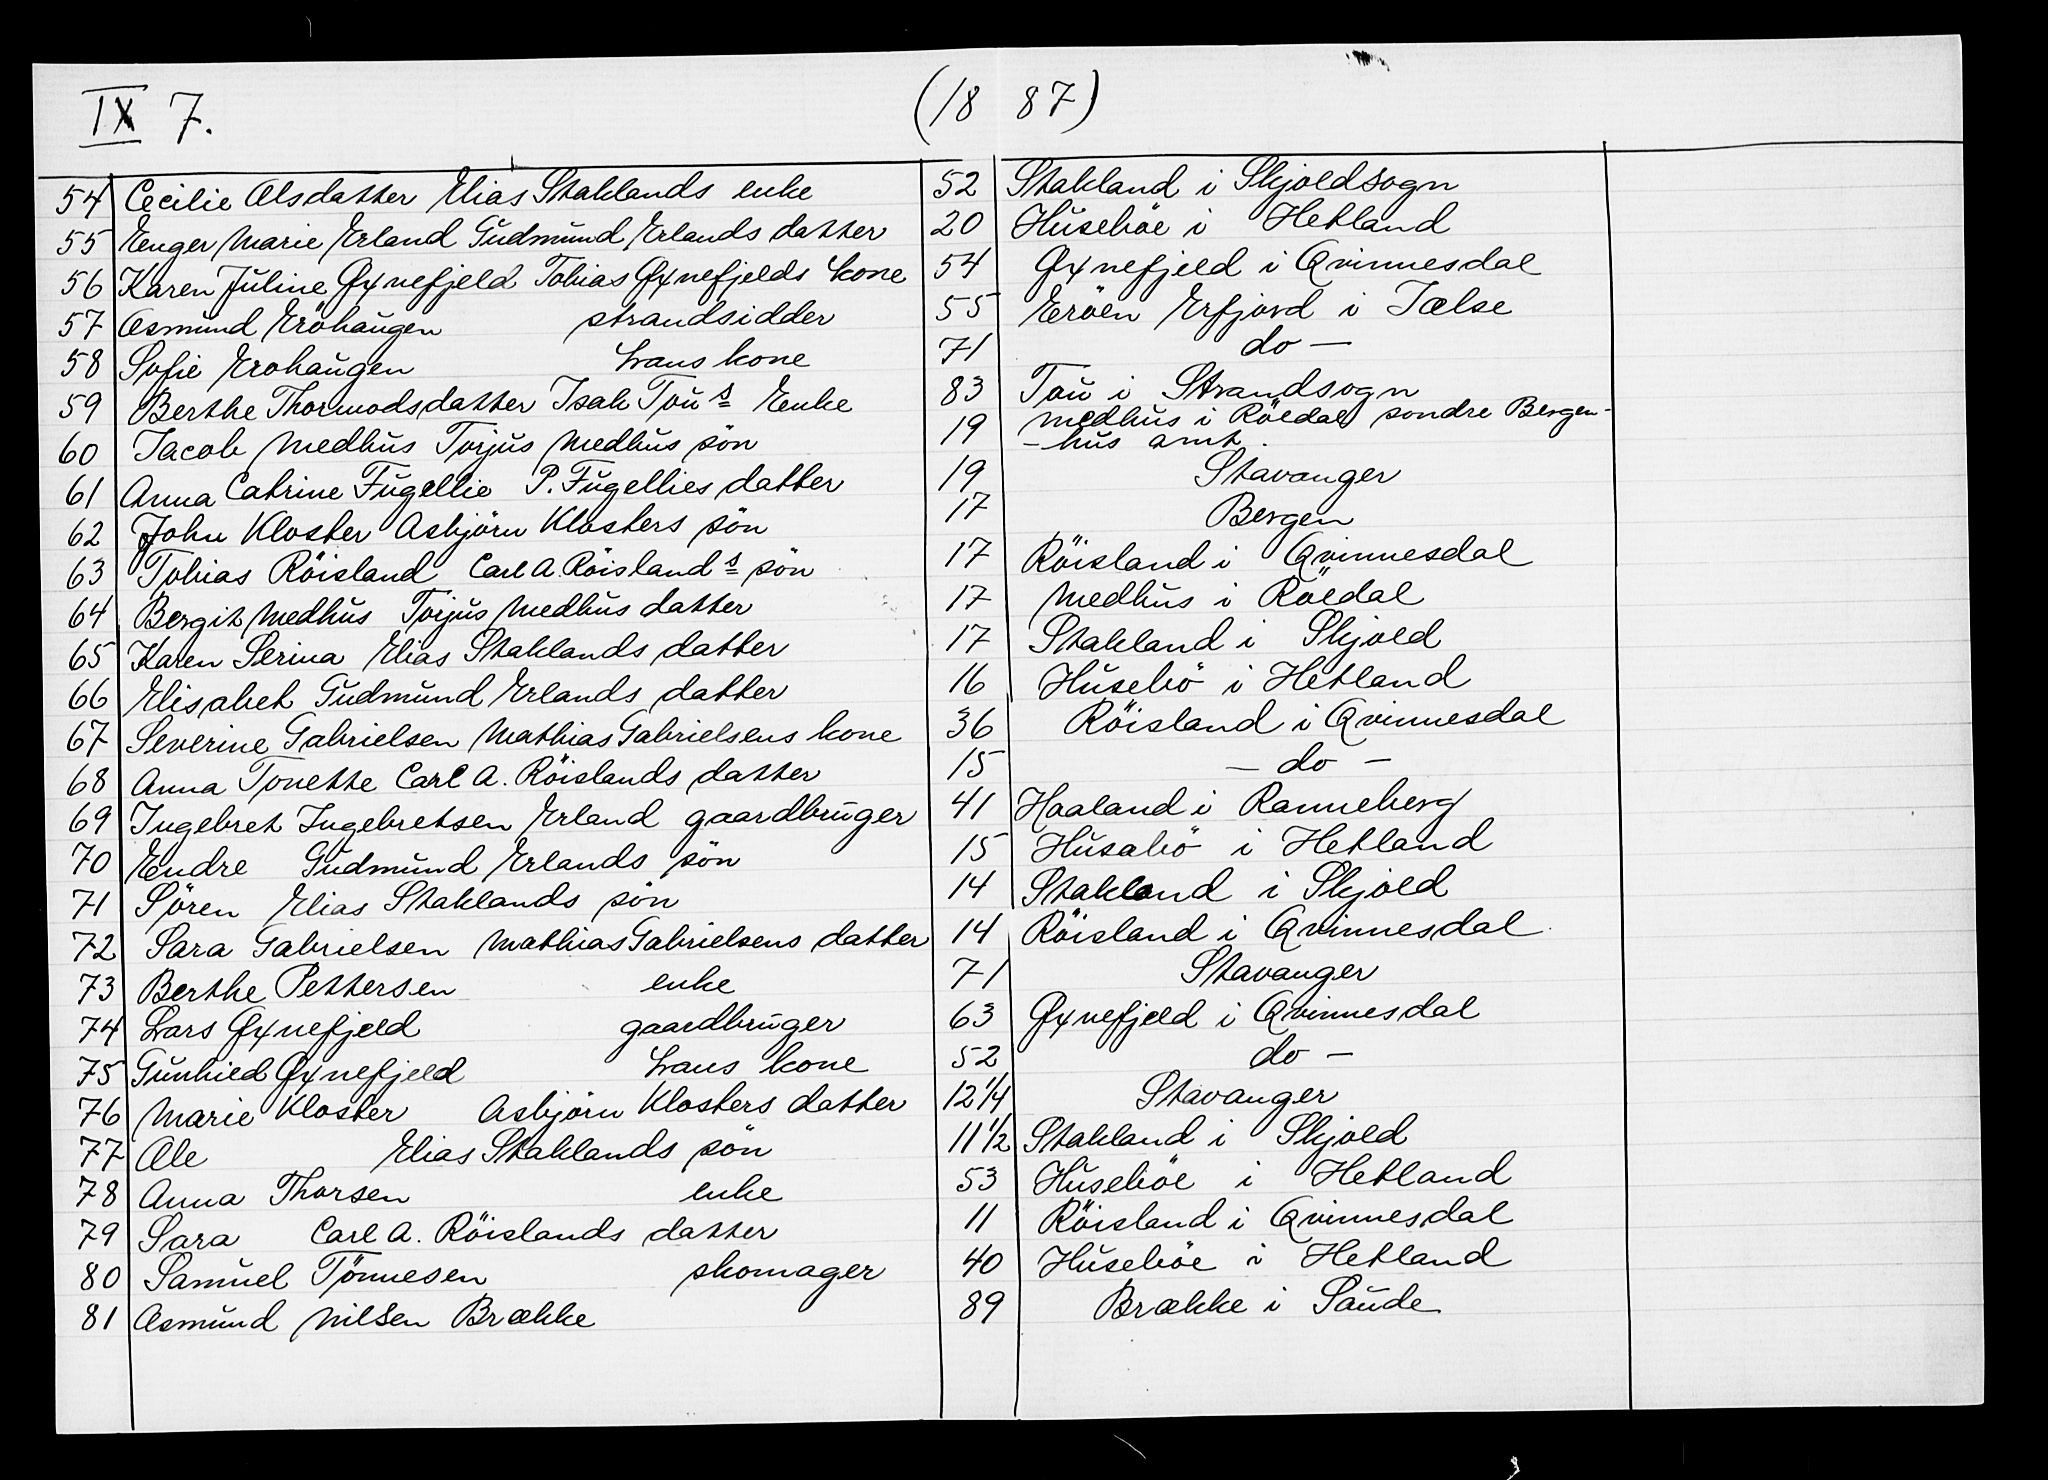 IX 7. (18 87)
54 Cecilie Olsdatter Elias Staklands enke 52 Stakland i Skjoldsogn
55 Enger Marie Erland Gudmund Erlands datter 20 Husebøe i Hetland
56 Karen Juline Øxnefjeld Tobias Øxnefjelds kone 54 Øxnefjeld i Qvinnesdal
57 Asmund Eröhaugen strandsidder 55 Eröen Erfjord i Jælse
58 Sofie Erohaugen hans kone 71 do —
59 Berthe Thormodsdatter Isak Tou s Enke 83 Tou i Strandsogn
60 Jacob Medhus Torjus Medhus sön 19 Medhus i Röldal sondre Bergen-
-hus amt.
61 Anna Catrine Fugellie P. Fugellies datter 19 Stavanger
62 John Kloster Asbjörn Klosters sön 17 Bergen
63 Tobias Röisland Carl A. Röisland s sön 17 Röisland i Qvinnesdal
64 Bergit Medhus Torjus Medhus datter 17 Medhus i Röldal
65 Karen Serina Elias Staklands datter 17 Stakland i Skjold
66 Elisabet Gudmund Erlands datter 16 Husebö i Hetland
67 Severine Gabrielsen Mathias Gabrielsens kone 36 Röisland i Qvinnesdal
68 Anna Tonette Carl A. Röislands datter 15 — do —
69 Ingebret Ingebretsen Erland gaardbruger 41 Haaland i Ranneberg
70 Endre Gudmund Erlands sön 15 Husabö i Hetland
71 Sören Elias Staklands sön 14 Stakland i Skjold
72 Sara Gabrielsen Mathias Gabrielsens datter 14 Röisland i Qvinnesdal.
73 Berthe Pettersen enke 71 Stavanger
74 Lars Øxnefjeld gaardbruger 63 Øxnefjeld i Qvinnesdal
75 Gunhild Øxnefjeld hans kone 52 do —
76 Marie Kloster Asbjörn Klosters datter 12 1/4 Stavanger
77 Ole Elias Staklands sön 11 1/2 Stakland i Skjold
78 Anna Thorsen enke 53 Husebøe i Hetland
79 Sara Carl A. Röislands datter 11 Röisland i Qvinnesdal
80 Samuel Tönnesen skomager 40 Husebøe i Hetland
81 Asmund Nilsen Brække 89 Brække i Saude